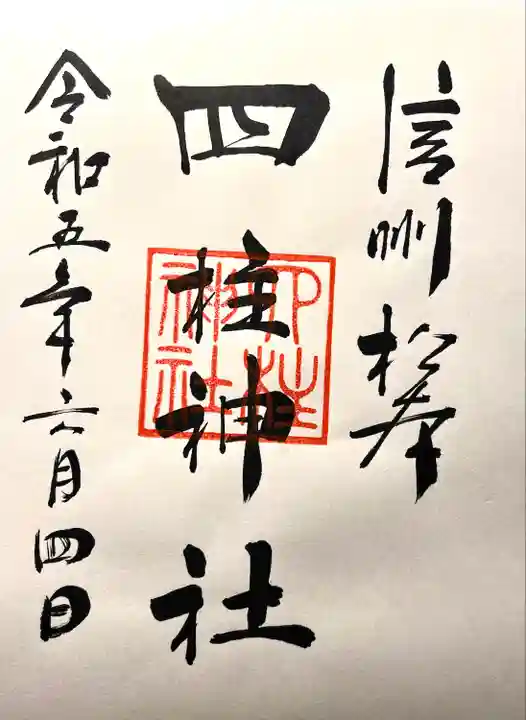 信州松本
四柱神社
四柱神社
令和五年六月四日